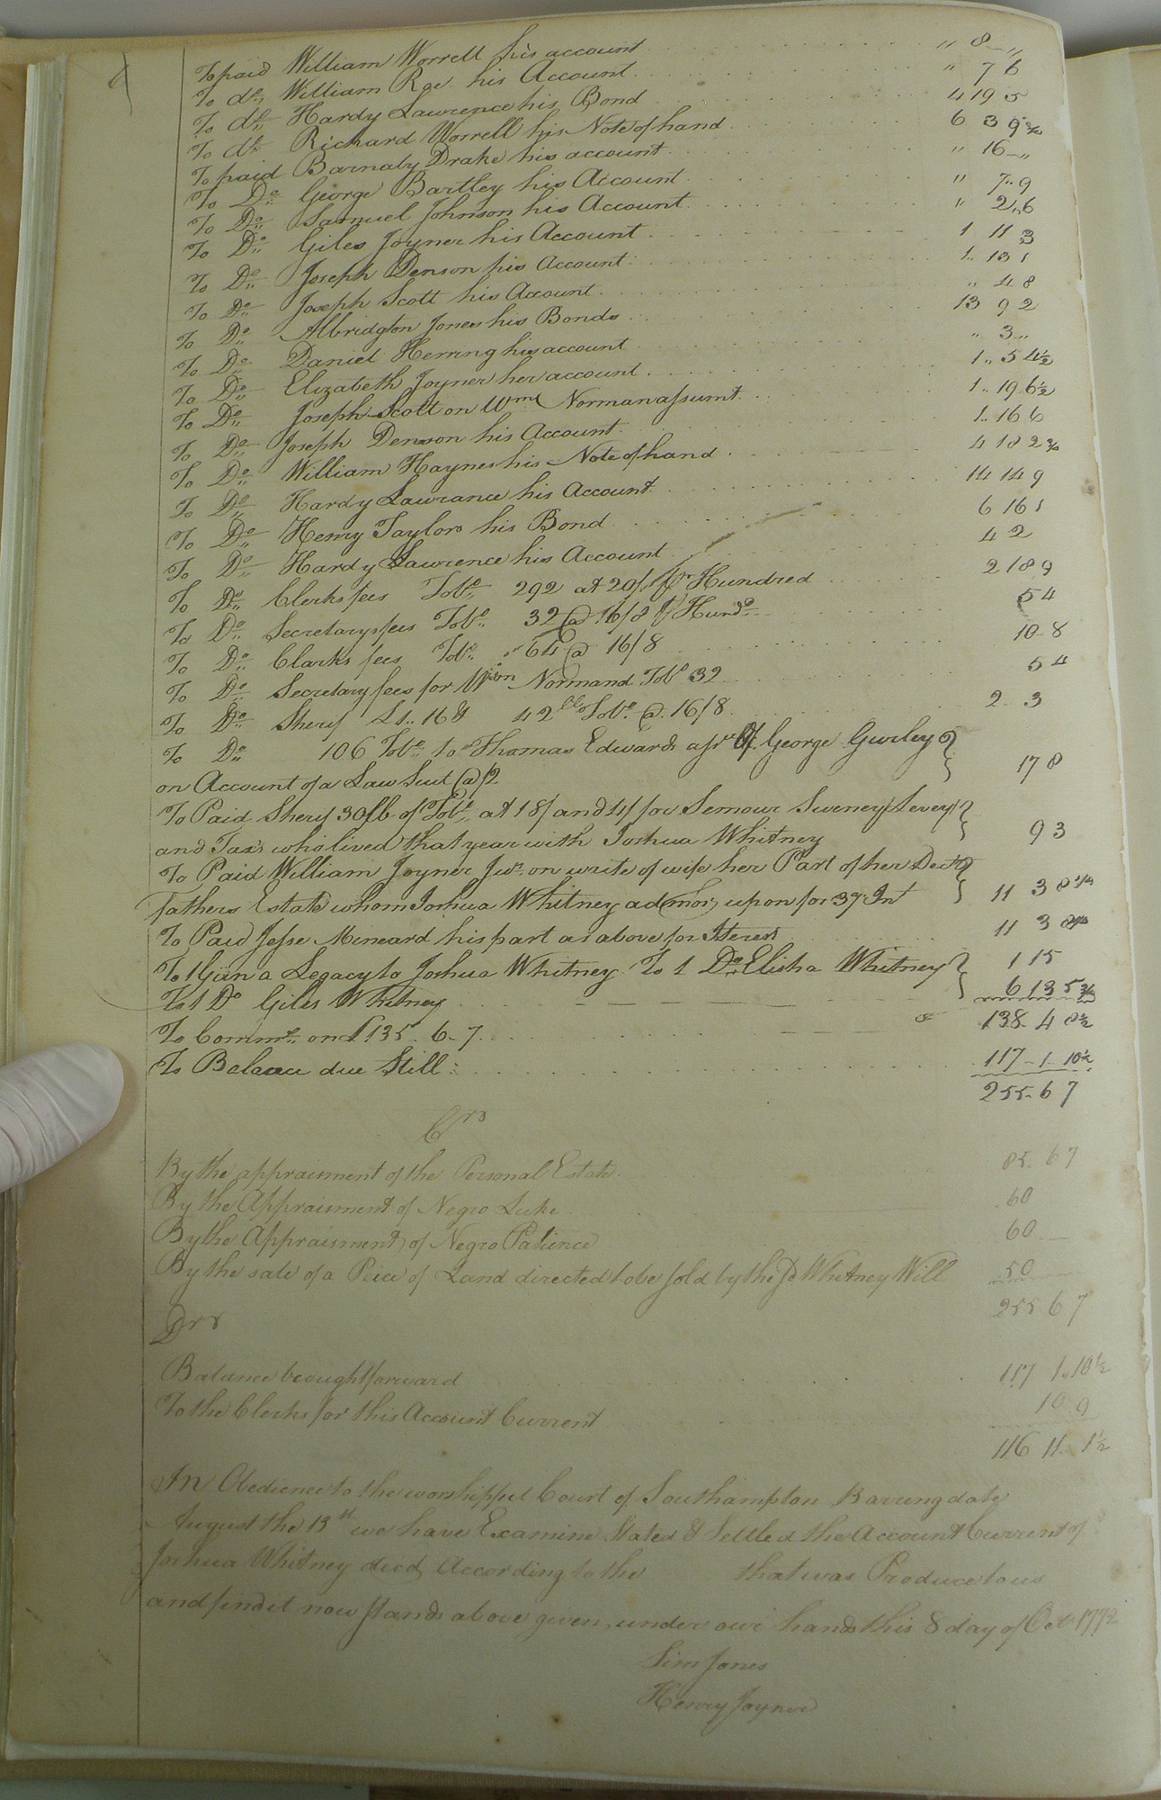 To paid William Worrell his account " 8 - "
To do William Roe his Account " 7 6
To do Hardy Lawrence his Bond 4 19 5
To do Richard Worrell his Note of hand 6 3 9 3/4
To paid Barnaby Drake his account " 16 - "
To Do George Bartley his Account " 7 " 9
To Do Samuel Johnson his Account " 2 " 6
To Do Giles Joyner his Account 1 11 3
To Do Joseph Denson his Account 1 " 13 1
To Do Joseph Scott his Account " 4 8
To Do Albridgton Jones his Bonds 13 9 2
To Do Daniel Herring his account " 3 "
To Do Elizabeth Joyner her account 1 " 5 4 1/2
To Do Joseph Scott on Wm Norman assumt 1 " 19 6 1/2
To Do Joseph Denson his Account 1 " 16 6
To Do William Haynes his Note of hand 4 18 2 3/4
To Do Hardy Lawrance his Account 14 14 9
To Do Henry Taylors his Bond 6 16 1
To Do Hardy Lawrence his Account 4 2
To Do Clerks fees Tobo 292 at 20/ pr Hundred 2 18 9
To Do Secretarys fees Tobo 32 @ 16/8 p Hundd 5 4
To Do Clarks fees Tobo 64 @ 16/8 10 - 8
To Do Secretary fees for Wm Normand Tobo 32 5 4
To Do Sherif 42 lb Tobo @ 16/8 2 3
To Do 106 Tobo to Thomas Edwards assr of George Gurley
on Account of a Law Suit @ /2 17 8
To Paid Sherif 30 lb of Tobo at 18/ and 4/ for Semour Surney Levey
and Taxs who lived that year with Joshua Whitney 9 3
To Paid William Joyner Junr on write of wife her Part of her Decd
fathers Estate whom Joshua Whitney admor upon for 37 Int 11 3 8 1/4
To Paid Jesse Meneard his part as above for Iterest 11 3 8 1/4
To 1 Gun a Legacy to Joshua Whitney To 1 Do Elisha Whitney 1 15
To 1 Do Giles Whitney 6 13 5 3/4
To Comms on £135 . 6 - 7 138 - 4 8 1/2
To Balance due Still: 117 - 1 - 10 1/2
255 - 6 7
Crs
By the appraisment of the Personal Estate 85 - 6 7
By the Appraisment of Negro Luke 60
By the Appraisment of Negro Patience 60
By the sale of a Peice of Land directed to be sold by the sd Whitney Will 50
255 6 7
Drs
Balance brought forward 117 1 " 10 1/2
To the Clerks for this Account Current 10 9
116 11 - 1 1/2
In Obedience to the worshipful Court of Southampton Barring date
August the 13th we have Examine Stated & Settled the Account Current of
Joshua Whitney decd According to the that was Produce to us
and find it now stands above given, under our hands this 8 day of Oct 1772
Sim Jones
Henry Joyner